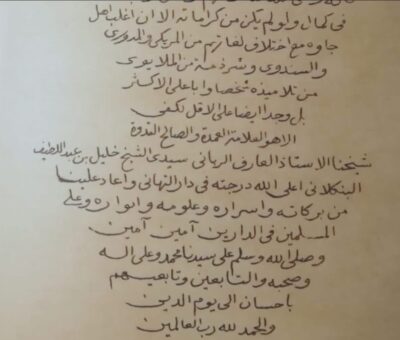 فى كمال ولو لم يكن من كراماته الا ان اغلب اهل
جاوه مع اختلاف لغاتهم من المريكى والمدورى
والسندوى وشرذمة من الملايوى
من تلاميذه شخصا وابا على الاكثر
بل وجدا ايضا على الاقل لكفى
الا هو العلامة العمدة والصالح القدوة
شيخنا الاستاذ العارف الربانى سيدى الشيخ خليل بن عبد اللطيف
البنكلانى اعلى الله درجته فى دار التهانى واعاد علينا
من بركاته واسراره وعلومه وانواره وعلى
المسلمين فى الدارين آمين آمين
وصلى الله وسلم على سيدنا محمد وعلى اله
وصحبه والتابعين وتابعيهم
باحسان الى يوم الدين
والحمد لله رب العالمين